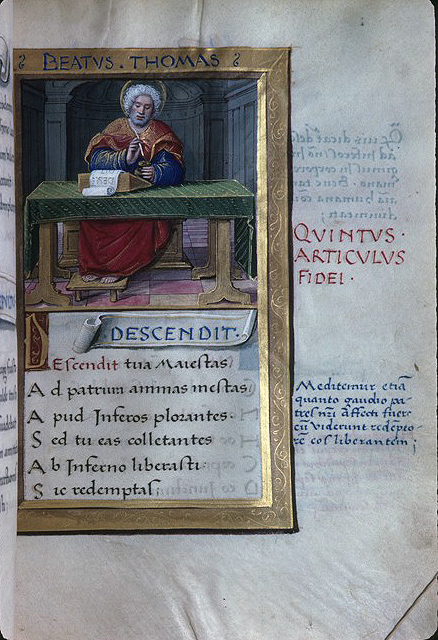 BEATVS. THOMAS
DESCENDIT.
DEscendit tua Maiestas
Ad patrum animas mestas
Apud Inferos plorantes.
Sed tu eas colletantes
Ab Inferno liberasti.
Sic redemptas
QVINTVS.
ARTICVLVS
FIDEI.
Meditemur etiã
quanto gaudio pa-
tres affecti fuere
cũ viderunt redẽpto-
rẽ eos liberantem;